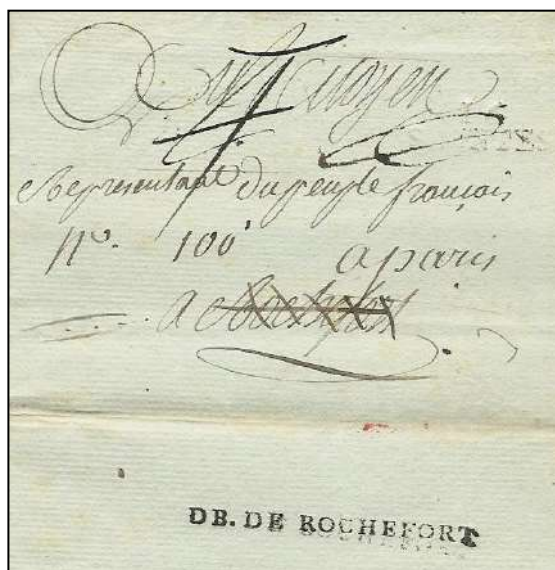 Au Citoyen
Representant du peuple français
N°. 100
a paris
a Rochefort
DB. DE ROCHEFORT